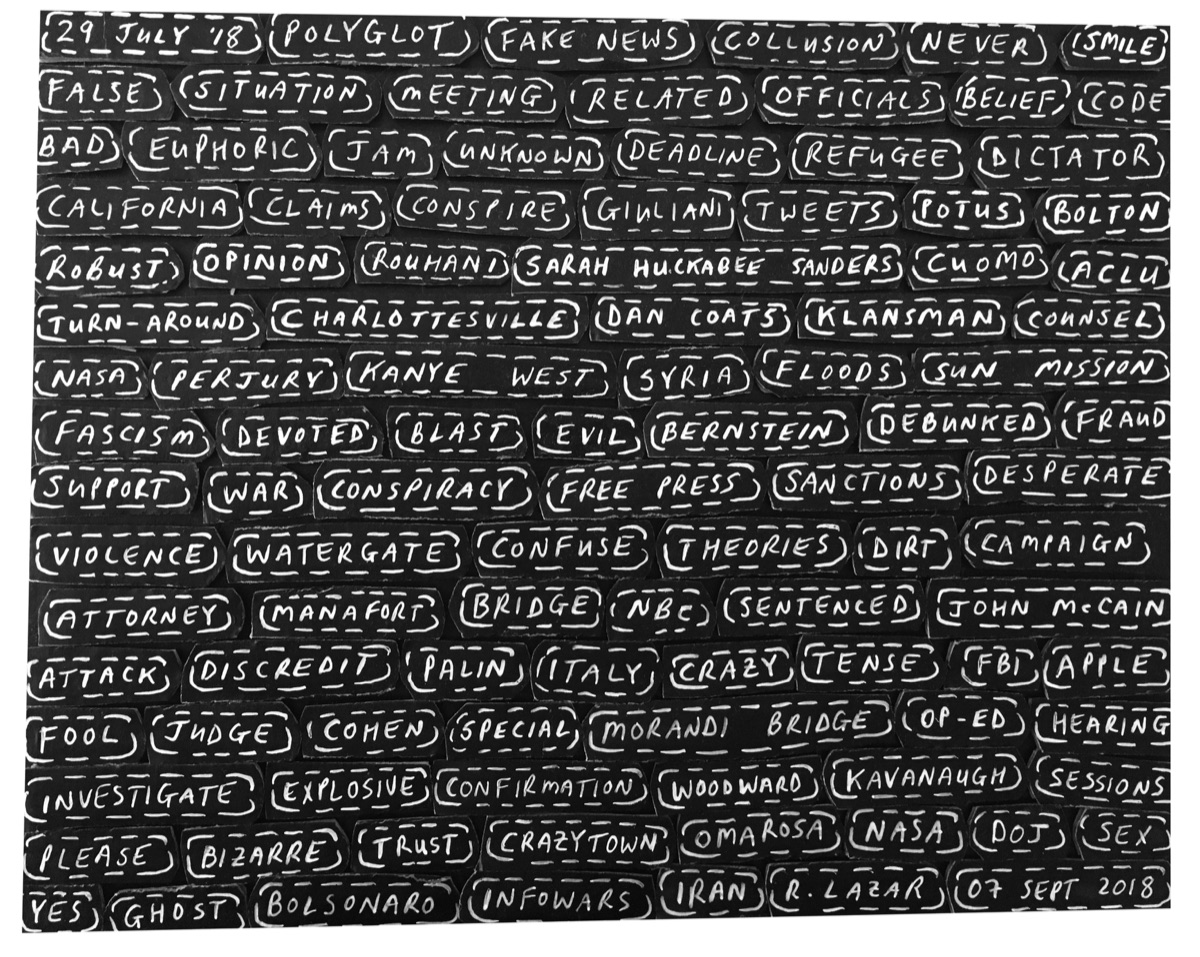 29 JULY '18 POLYGLOT FAKE NEWS COLLUSION NEVER SMILE
FALSE SITUATION MEETING RELATED OFFICIALS BELIEF CODE
BAD EUPHORIC JAM UNKNOWN DEADLINE REFUGEE DICTATOR
CALIFORNIA CLAIMS CONSPIRE GIULIANI TWEETS POTUS BOLTON
ROBUST OPINION ROUHANI SARAH HUCKABEE SANDERS CUOMO ACLU
TURN-AROUND CHARLOTTESVILLE DAN COATS KLANSMAN COUNSEL
NASA PERJURY KANYE WEST SYRIA FLOODS SUN MISSION
FASCISM DEVOTED BLAST EVIL BERNSTEIN DEBUNKED FRAUD
SUPPORT WAR CONSPIRACY FREE PRESS SANCTIONS DESPERATE
VIOLENCE WATERGATE CONFUSE THEORIES DIRT CAMPAIGN
ATTORNEY MANAFORT BRIDGE NBC SENTENCED JOHN McCAIN
ATTACK DISCREDIT PALIN ITALY CRAZY TENSE FBI APPLE
FOOL JUDGE COHEN SPECIAL MORANDI BRIDGE OP-ED HEARING
INVESTIGATE EXPLOSIVE CONFIRMATION WOODWARD KAVANAUGH SESSIONS
PLEASE BIZARRE TRUST CRAZYTOWN OMAROSA NASA DOJ SEX
YES GHOST BOLSONARO INFOWARS IRAN R. LAZAR 07 SEPT 2018